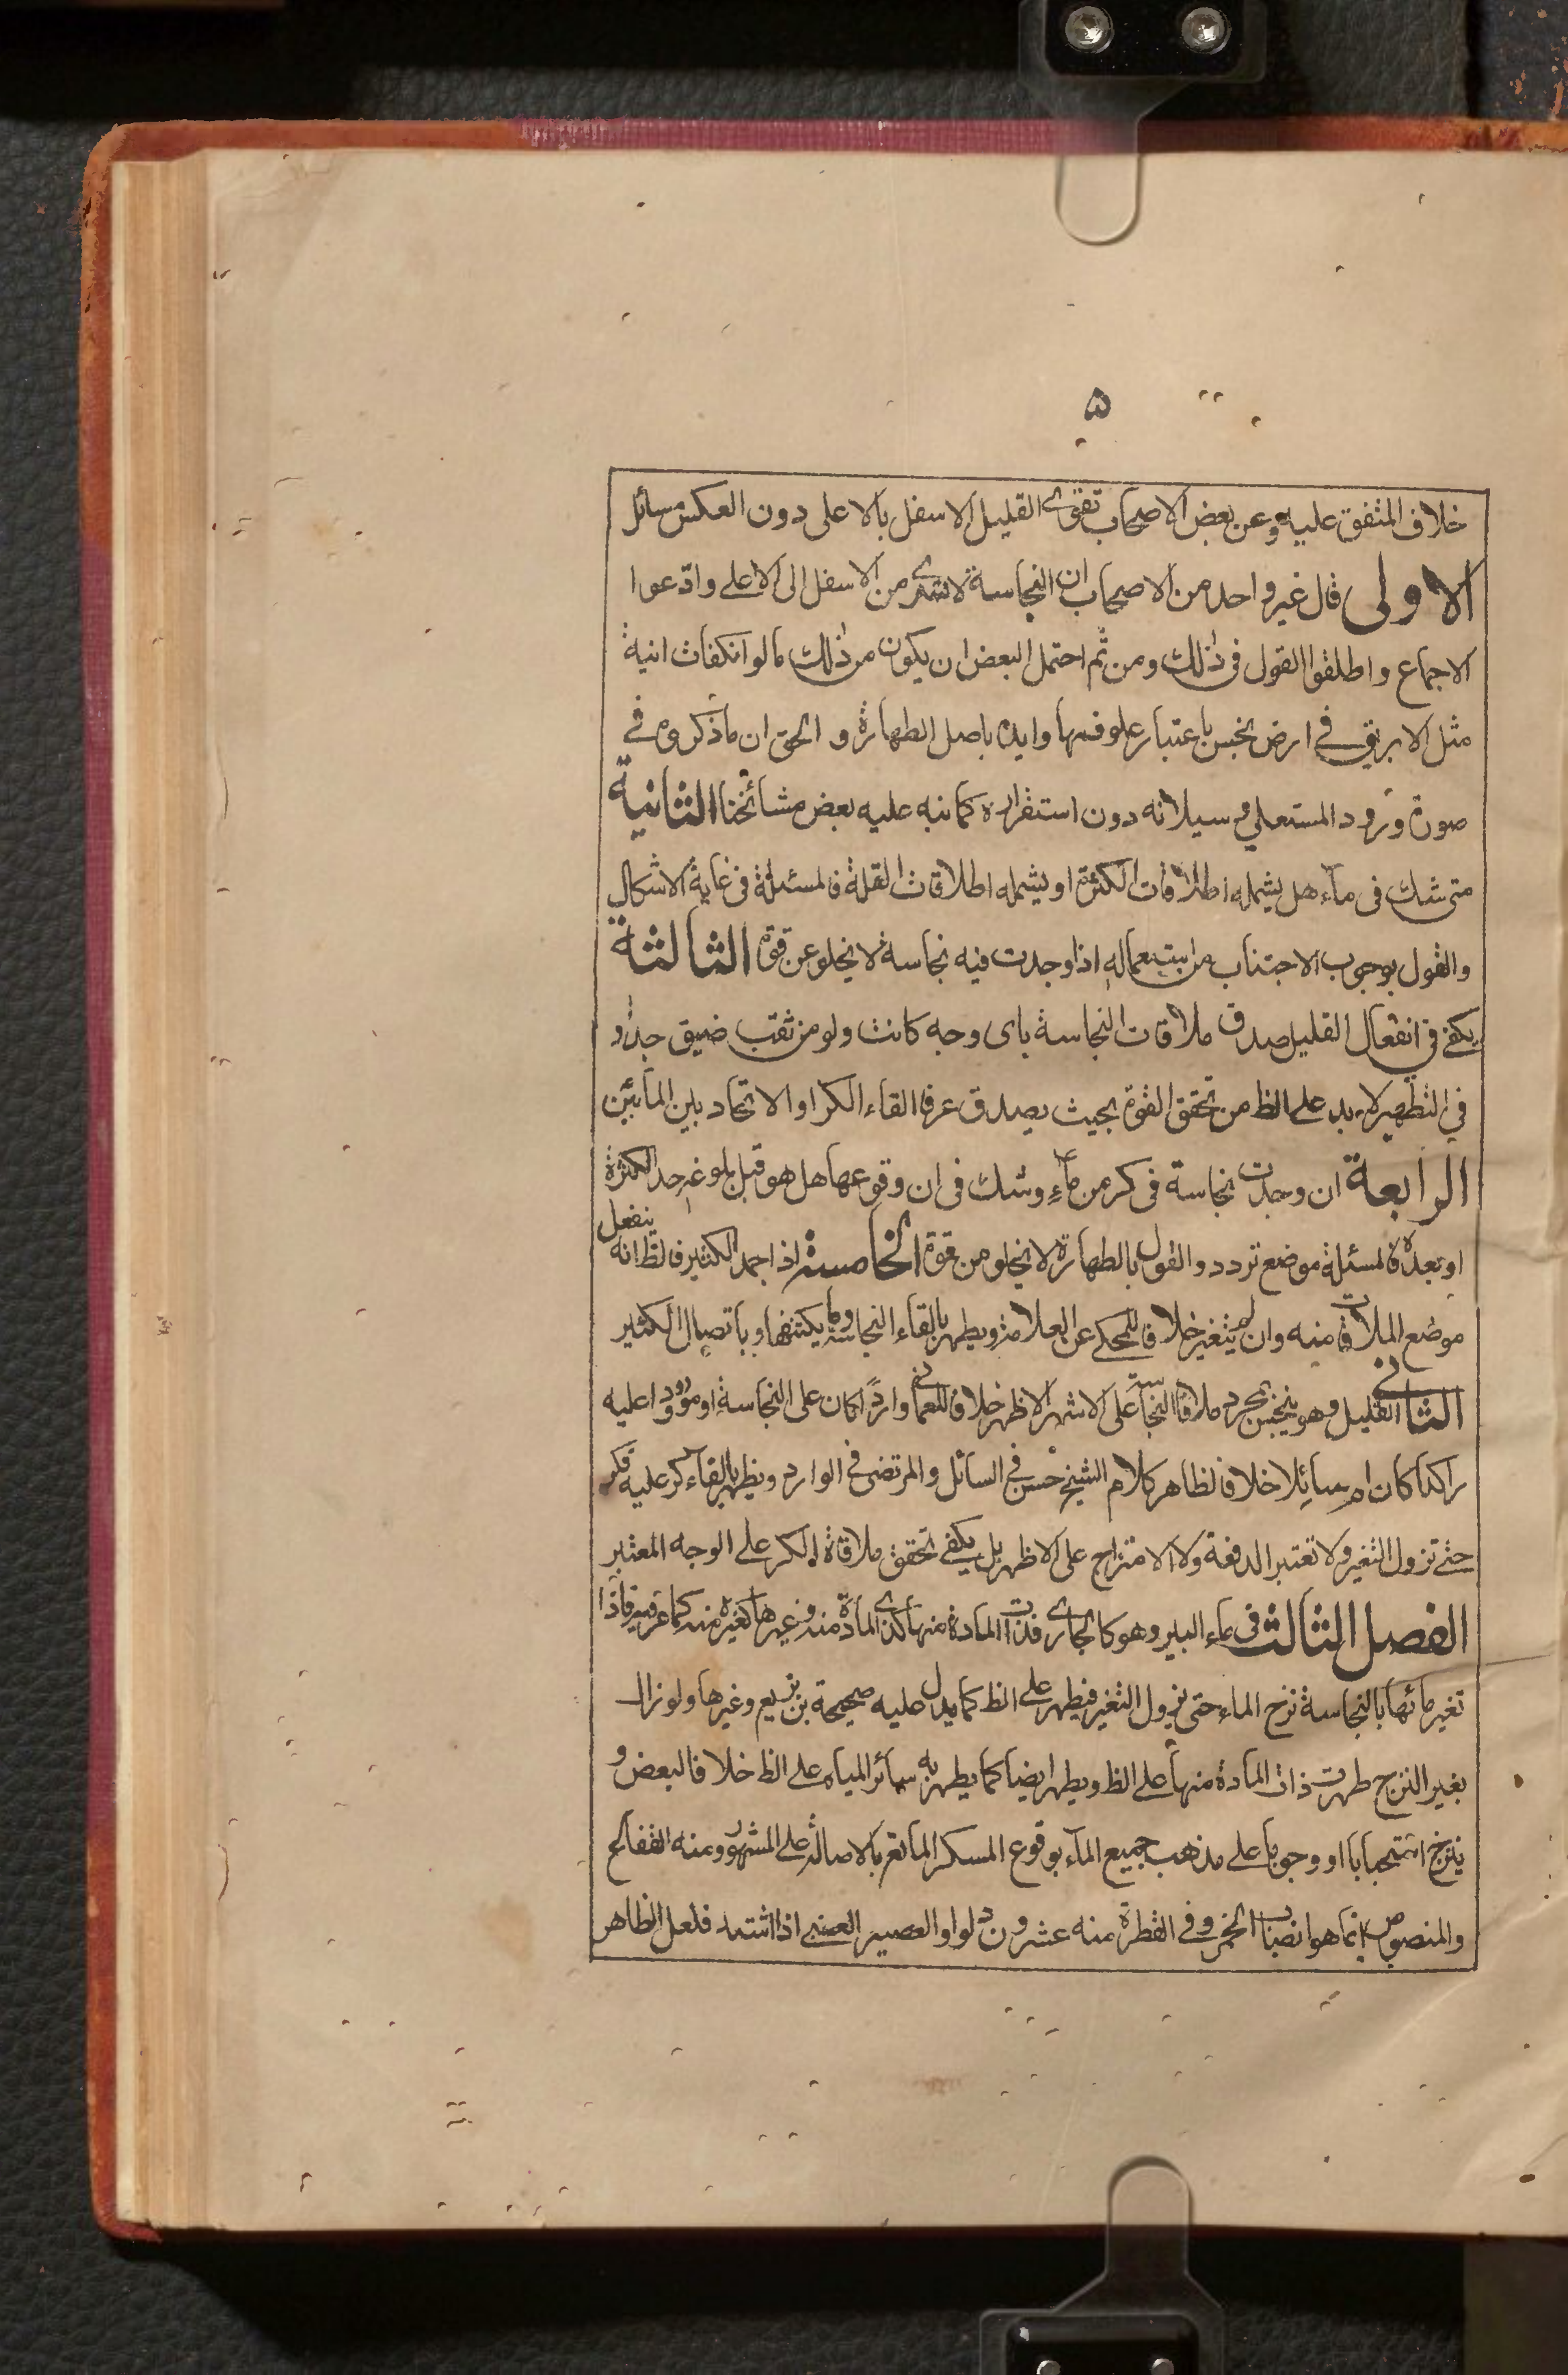 ۵
خلاف المتفق عليه وعن بعض الاصحاب تقوى القليل الاسفل بالاعلى دون العكس مسائل
الاولى قال غير واحد من الاصحاب ان النجاسة لا تسرى من الاسفل الى الاعلى وادعوا
الاجماع واطلقوا القول فى ذلك ومن ثم احتمل البعض ان يكون من ذلك ما لو انكفات انية
مثل الابريق فى ارض نجس باعتبار علو فمها وايده باصل الطهارة و الحق ان ما ذكروه فى
صورة ورود المستعلى وسيلانه دون استقراره كما نبه عليه بعض مشائخنا الثانية
متى شك فى ماء هل يشمله اطلاقات الكثرة او يشمله اطلاقات القلة فالمسئلة فى غاية الاشكال
والقول بوجوب الاجتناب من استعماله اذا وجدت فيه نجاسة لا يخلو عن قوة الثالثة
يكفى فى انفعال القليل صدق ملاقات النجاسة باى وجه كانت ولو من ثقب ضيق جدا و
في التطهير لا بد على الظ من تحقق القوة بحيث يصدق عرفا القاء الكر او الاتحاد بين المائين
الرابعة ان وجدت نجاسة فى كر من ماء وشك فى ان وقوعها هل هو قبل بلوغه حد الكثرة
او بعده فالمسئلة موضع تردد والقول بالطهارة لا يخلو من قوة الخامسة اذا جمد الكثير فالظ انه ينفعل
موضع الملاقات منه وان لم يتغير خلافا للمحكى عن العلامة ويطهر بالقاء النجاسة وما يكتنفها وباتصال الكثير
الثانى القليل وهو ينجس بمجرد ملاقات النجاسة على الاشهر الاظهر خلافا للعمانى واردا كان على النجاسة او مورودا عليه
راكدا كان ام سائلا خلافا لظاهر كلام الشيخ حسن فى السائل والمرتضى فى الوارد ويطهر بالقاء كر عليه فكر
حتى تزول التغير ولا تعتبر الدفعة ولا الامتزاج على الاظهر بل يكفى تحقق ملاقاة الكر على الوجه المعتبر
الفصل الثالث فى ماء البير وهو كالجارى فذات المادة منها كذى المادة منه وغيرها كغيره منه كما عرفته فاذا
تغير مائها بالنجاسة نزح الماء حتى يزول التغير فيطهر على الظ كما يدل عليه صحيحة بن بزيع وغيرها ولو زال
بغير النزح طهرت ذات المادة منها على الظ ويطهر ايضا كما يطهر به سائر المياه على الظ خلافا لبعض و
ينزح استحبابا او وجوبا على مذهب جميع الماء بوقوع المسكر المائع بالاصالة على المشهور ومنه الفقاع
والمنصوص انما هو انصباب الخمر وفى القطرة منه عشرون دلوا والعصير العنبى اذا اشتد فلعل الظاهر